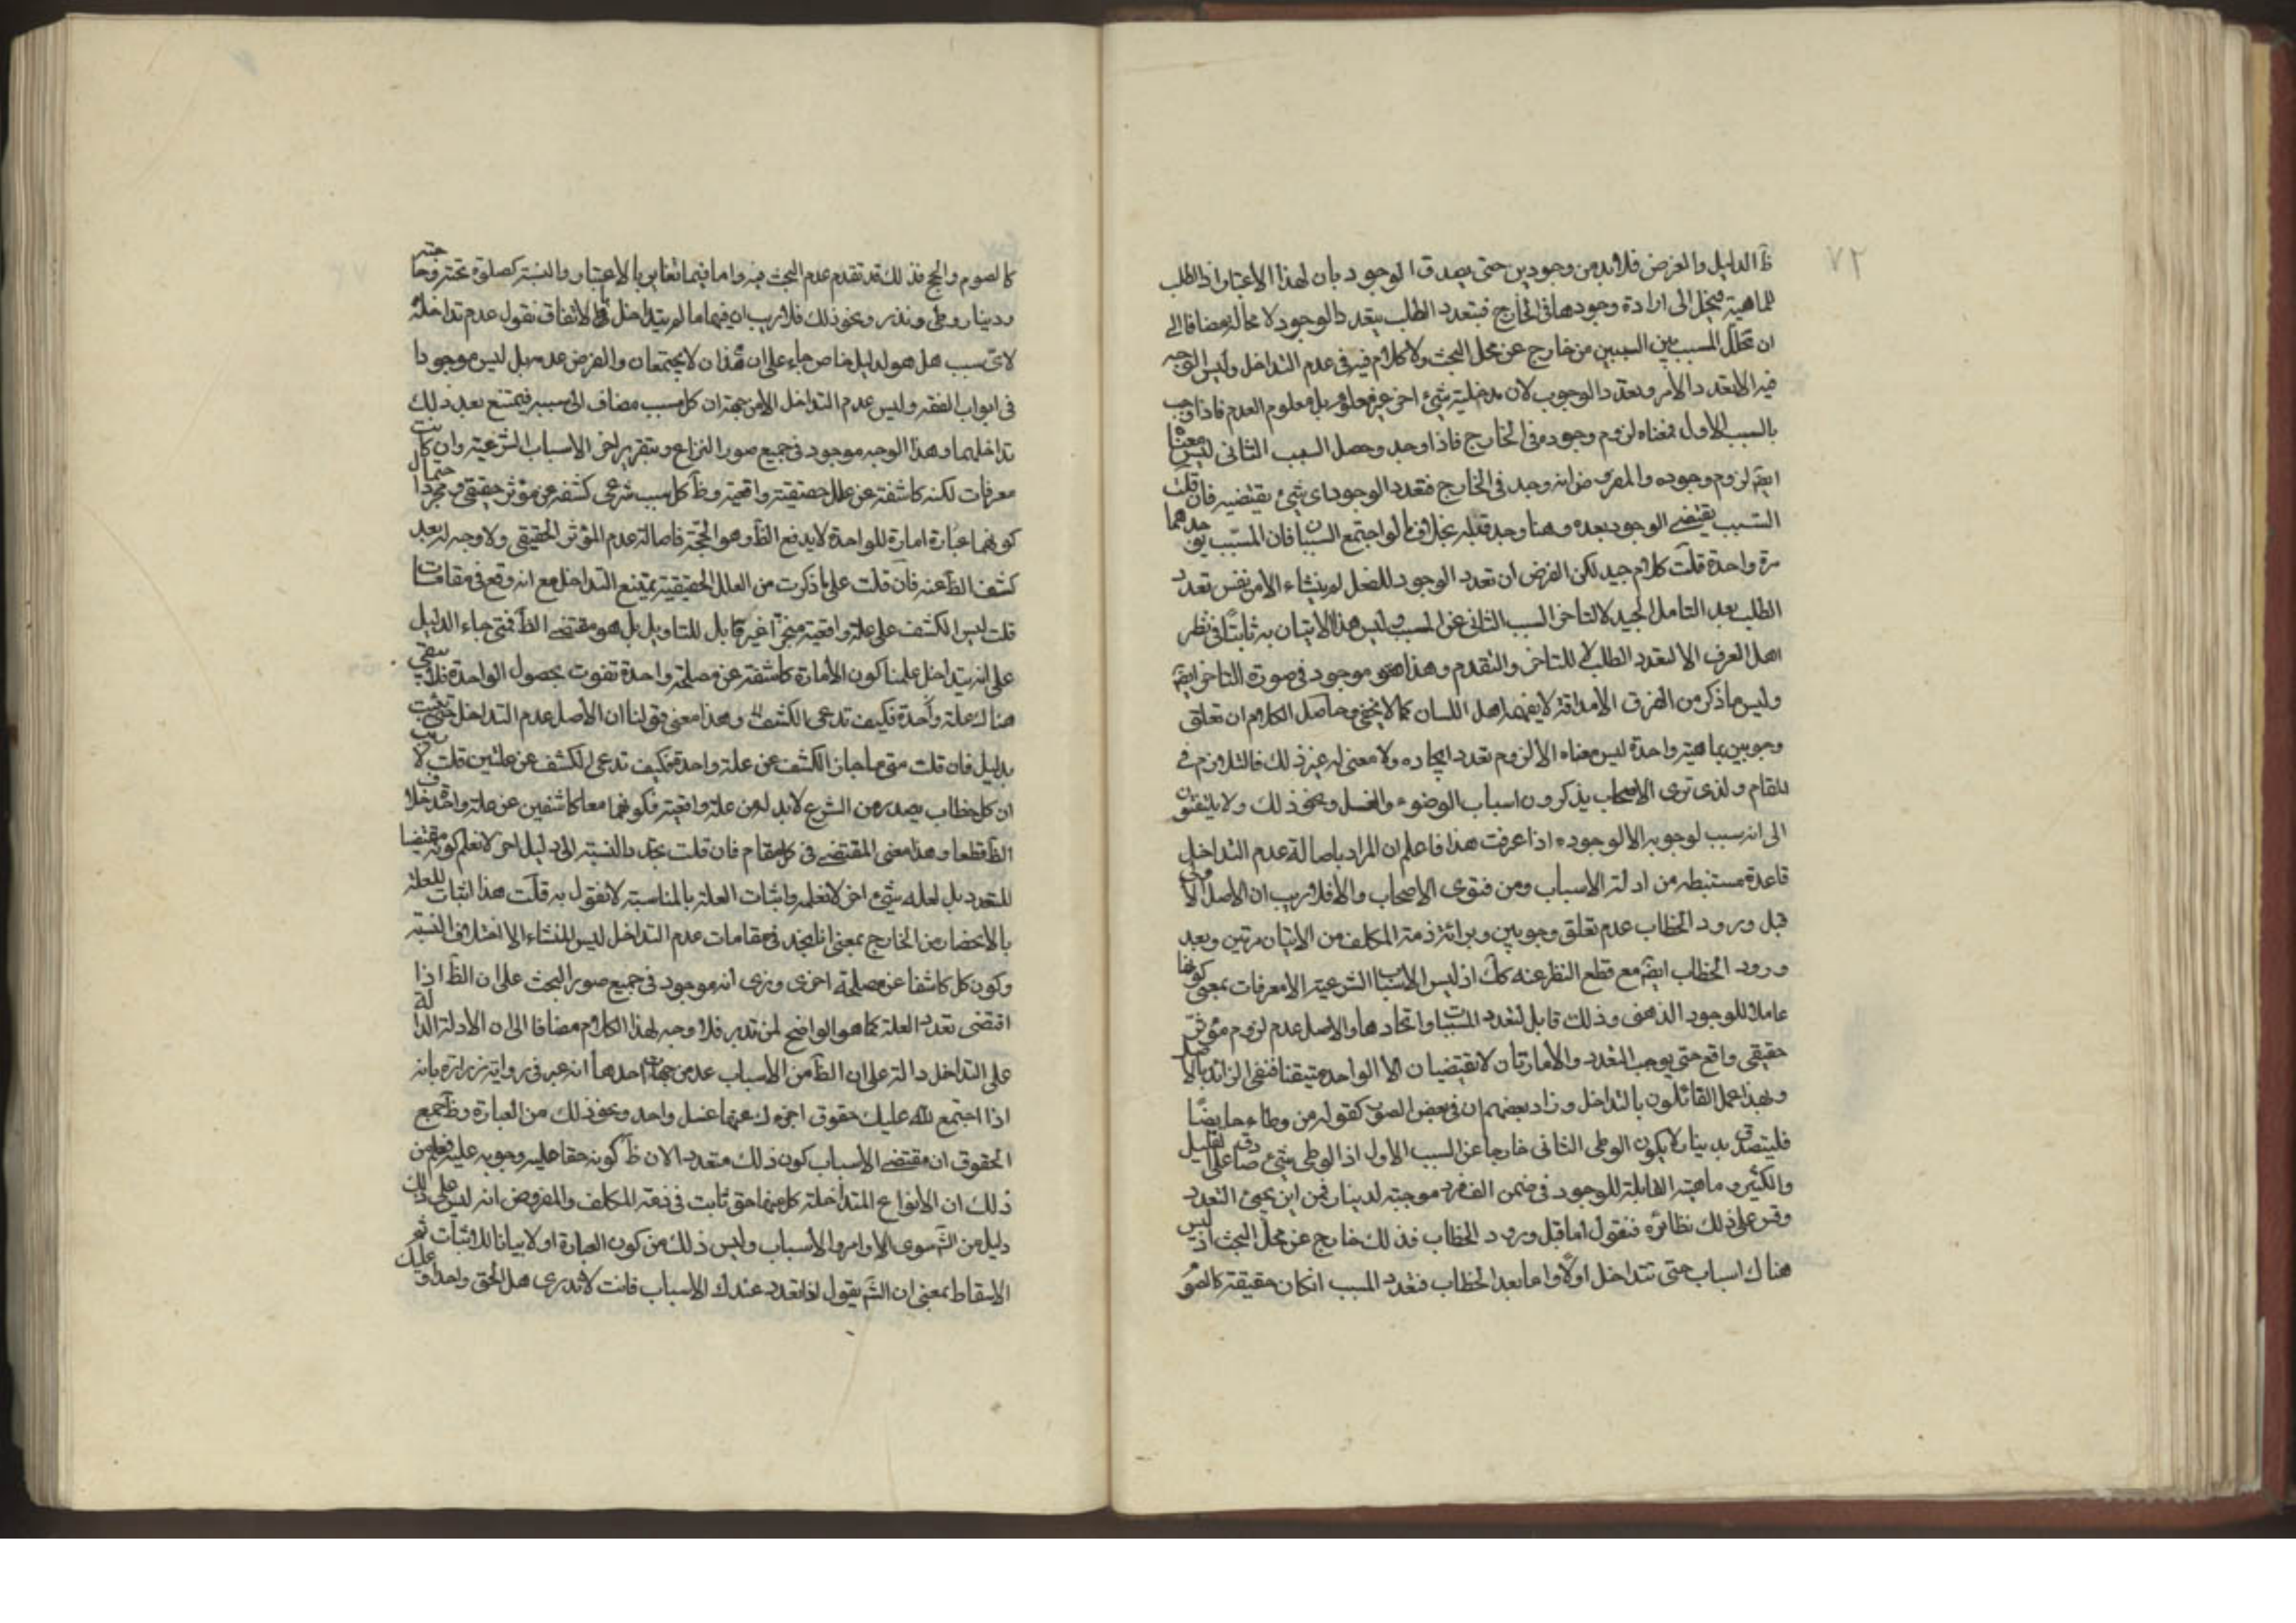 ٧٢
ظ الدليل والفرض فلابد من وجودين حتى يصدق الوجود بان لهذا الاعتبار اذ الطلب
للماهية ينحل الى ارادة وجودها فى الخارج فبتعدد الطلب يتعدد الوجود لا محالة مضافا الى
ان تخلل المسبب بين السببين من خارج عن محل البحث ولا كلام فيه فى عدم التداخل وليس الوجه
فيه الا تعدد الامر وتعدد الوجوب لان مدخلية شئ اخر غير معلوم بل معلوم العدم فاذا وجب
بالسبب الاول فمعناه لزوم وجوده فى الخارج فاذا وجد وحصل السبب الثانى ليس معناه
ايضا لزوم وجوده والمفروض انه وجد فى الخارج فتعدد الوجود اى شئ يقتضيه فان قلت
السبب يقتضى الوجود بعده وهنا وجد قبله بخلاف ما لو اجتمع السببان فان المسبب يوجد هما
مرة واحدة قلت كلام جيد لكن الفرض ان تعدد الوجود للفعل لم ينشاء الا من نفس تعدد
الطلب بعد التامل الجيد لا لتاخر السبب الثانى عن المسبب وليس هذا الاتيان به ثابتا فى نظر
اهل العرف الا لتعدد الطلب لا للتاخر والتقدم وهذا هو موجود فى صورة التاخر ايضا
وليس ما ذكر من الفرق الا مداقة لا يفهمها اهل اللسان كما لا يخفى وحاصل الكلام ان تعلق
وجوبين بماهية واحدة ليس معناه الا لزوم تعدد ايجاده ولا معنى له غير ذلك فالتلازم فى
المقام ولذى ترى الاصحاب يذكرون اسباب الوضوء والغسل ونحو ذلك ولا يلتفتون
الى انه سبب لوجوبه الا لوجوده اذا عرفت هذا فاعلم ان المراد باصالة عدم التداخل
قاعدة مستنبطه من ادلة الاسباب ومن فتوى الاصحاب والا فلا ريب ان الاصل الاولى
قبل ورود الخطاب عدم تعلق وجوبين وبرائة ذمة المكلف من الاتيان مرتين وبعد
ورود الخطاب ايضا مع قطع النظر عنه كك اذ ليس الاسباب الشرعية الا معرفات بمعنى كونها
عاملا للوجود الذهنى وذلك قابل لتعدد المسببات واتحادها والاصل عدم لزوم مؤثر
حقيقى واقع حتى يوجب التعدد والامارتان لا تقتضيان الا الواحد متيقنا فنفى الزائد بالاصل
وبهذا عمل القائلون بالتداخل وزاد بعضهم ان فى بعض الصور كقوله من وطاء حايضا
فليتصدق بدينار لا يكون الوطى الثانى خارجا عن السبب الاول اذ الوطى شئ صادق على القليل
والكثير وماهيته القابلة للوجود فى ضمن الف فرد موجبة لدينار فمن اين يجئ التعدد
وقس على ذلك نظائره فنقول اما قبل ورود الخطاب فذلك خارج عن محل البحث اذ ليس
هناك اسباب حتى تتداخل اولا واما بعد الخطاب فتعدد المسبب انكان حقيقة كالصوم
كالصوم والحج فذلك قد تقدم عدم البحث فيه واما فيما تغاير بالاعتبار وبالنسبة كصلوة تحية وحاجته
ودينار وطى ونذر ونحو ذلك فلا ريب ان فيها ما لم يتداخل قط لاتفاق نقول عدم تداخله
لاى سبب هل هو لدليل خاص جاء على ان هذان لا يجتمعان والفرض عدمه بل ليس موجودا
فى ابواب الفقه وليس عدم التداخل الا من جهة ان كل سبب مضاف الى سببه فيمتنع بعد ذلك
تداخلهما وهذا الوجه موجود فى جميع صور النزاع وبتقرير اخر الاسباب الشرعية وان كانت
معرفات لكنه كاشفة عن علل حقيقية واقعية وظ كل سبب شرعى كشفه عن مؤثر حقيقى ومجرد احتمال
كونهما عبارة امارة للواحدة لا يدفع الظ وهو الحجة فاصالة عدم المؤثر الحقيقى ولا وجه له بعد
كشف الظ عنه فان قلت على ما ذكرت من العلل الحقيقية يمتنع التداخل مع انه وقع فى مقامات
قلت ليس الكشف على علة واقعية منجزا غير قابل للتاويل بل هو مقتضى الظ فمتى جاء الدليل
على انه يتداخل علمنا كون الامارة كاشفة عن مصلحة واحدة تفوت بحصول الواحدة فلا يبقى
هناك علة واحدة فكيف تدعى الكشف وهذا معنى قولنا ان الاصل عدم التداخل حتى يثبت
بدليل فان قلت متى ما جاز الكشف عن علة واحدة فكيف تدعى الكشف عن علتين قلت لا ريب
ان كل خطاب يصدر من الشرع لا بد له من علة واقعية فكونهما معا كاشفين عن علة واحدة خلاف
الظ قطعا وهذا معنى المقتضى فى كل مقام فان قلت نجد بالنسبة الى دليل اخر لا نعلم كونه مقتضيا
للتعدد بل لعله شئ اخر لا نعلمه واثبات العلة بالمناسبة لا نقول به قلت هذا اثبات للعلة
بالانحصار من الخارج بمعنى انا نجد فى مقامات عدم التداخل ليس المنشاء الا اختلاف النسبة
وكون كل كاشفا عن مصلحة اخرى ونرى انه موجود فى جميع صور البحث على ان الظ اذا
اقتضى تعدد العلة كما هو الواضح لمن تدبر فلا وجه لهذا الكلام مضافا الى ان الادلة الدالة
على التداخل دالة على ان الظ من الاسباب عدمه من جهات احدها انه عبر فى رواية زرارة بانه
اذا اجتمع لله عليك حقوق اجزء ك عنها غسل واحد ونحو ذلك من العبارة وظ جميع
الحقوق ان مقتضى الاسباب كون ذلك متعددا لان ظ كونه حقا عليه وجوبه عليه فعلم من
ذلك ان الانواع المتداخلة كل منها حق ثابت فى ذمة المكلف والمفروض انه ليس على ذلك
دليل من الشرع سوى الاوامر والاسباب وليس ذلك من كون العبارة اولا بيانا للاثبات ثم
الاسقاط بمعنى ان الش يقول اذا تعدد عندك الاسباب فانت لا تدرى هل الحق واحد او عليك